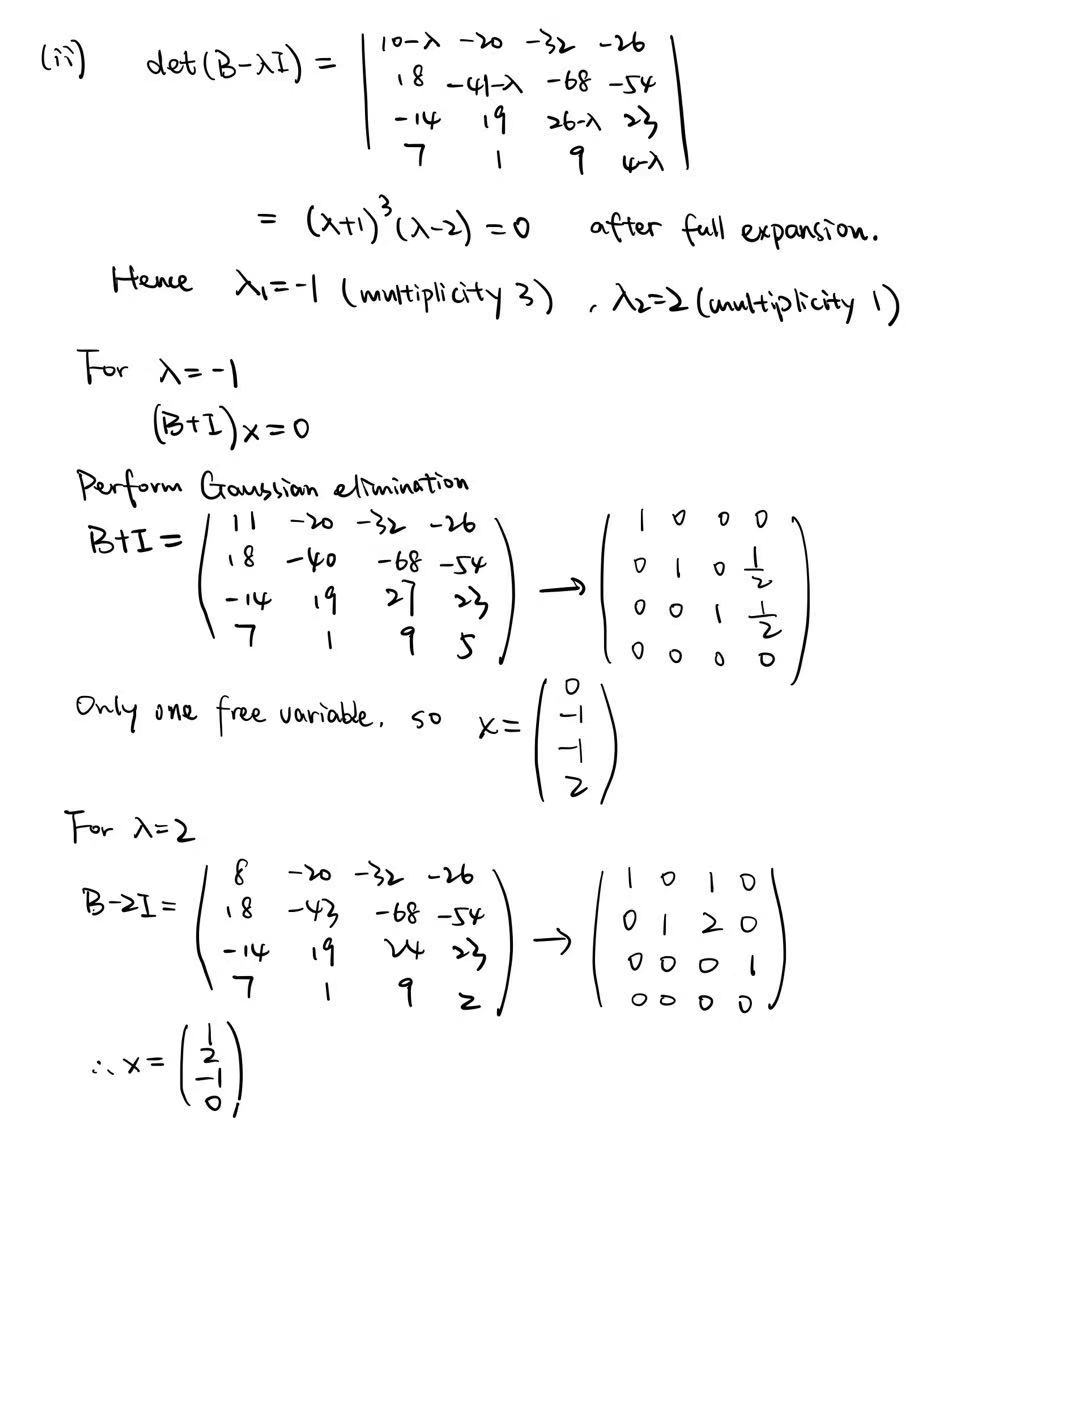 (ii) det(B-λI) = | 10-λ -20 -32 -26 |
| 18 -41-λ -68 -54 |
| -14 19 26-λ 23 |
| 7 1 9 4-λ |
= (λ+1)³(λ-2) = 0 after full expansion.
Hence λ₁=-1 (multiplicity 3), λ₂=2 (multiplicity 1)
For λ=-1
(B+I)x=0
Perform Gaussian elimination
B+I = ( 11 -20 -32 -26 ) → ( 1 0 0 0 )
( 18 -40 -68 -54 ) ( 0 1 0 1/2 )
( -14 19 27 23 ) ( 0 0 1 1/2 )
( 7 1 9 5 ) ( 0 0 0 0 )
Only one free variable, so x = ( 0
-1
-1
2 )
For λ=2
B-2I = ( 8 -20 -32 -26 ) → ( 1 0 1 0 )
( 18 -43 -68 -54 ) ( 0 1 2 0 )
( -14 19 24 23 ) ( 0 0 0 1 )
( 7 1 9 2 ) ( 0 0 0 0 )
∴ x = ( 1
2
-1
0 )